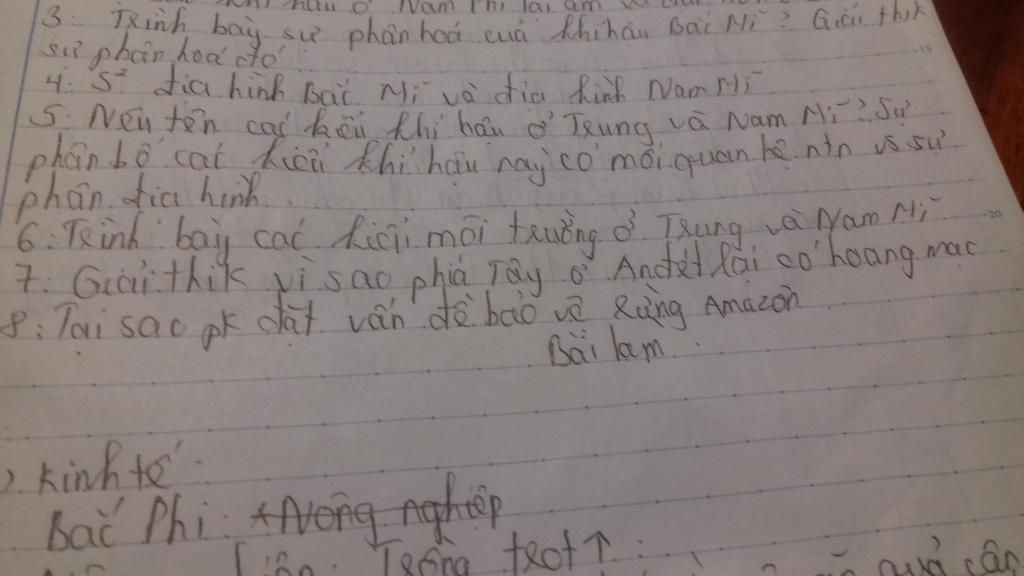 khí hậu ở Nam Phi lại ẩm và
3: Trình bày sự phân hoá của khí hậu Bắc Mĩ? Giải thik
sự phân hoá đó
4: S² địa hình Bắc Mĩ và địa hình Nam Mĩ
5: Nêu tên các kiểu khí hậu ở Trung và Nam Mĩ? Sự
phân bố các kiểu khí hậu này có mối quan hệ ntn vs sự
phân địa hình
6: Trình bày các kiểu môi trường ở Trung và Nam Mĩ
7: Giải thik vì sao phía Tây ở Anđét lại có hoang mạc
8: Tại sao pk đặt vấn đề bảo vệ rừng Amazôn
Bài làm
) Kinh tế:
Bắc Phi: +Nông nghiệp
Trồng trọt↑:
quả cận